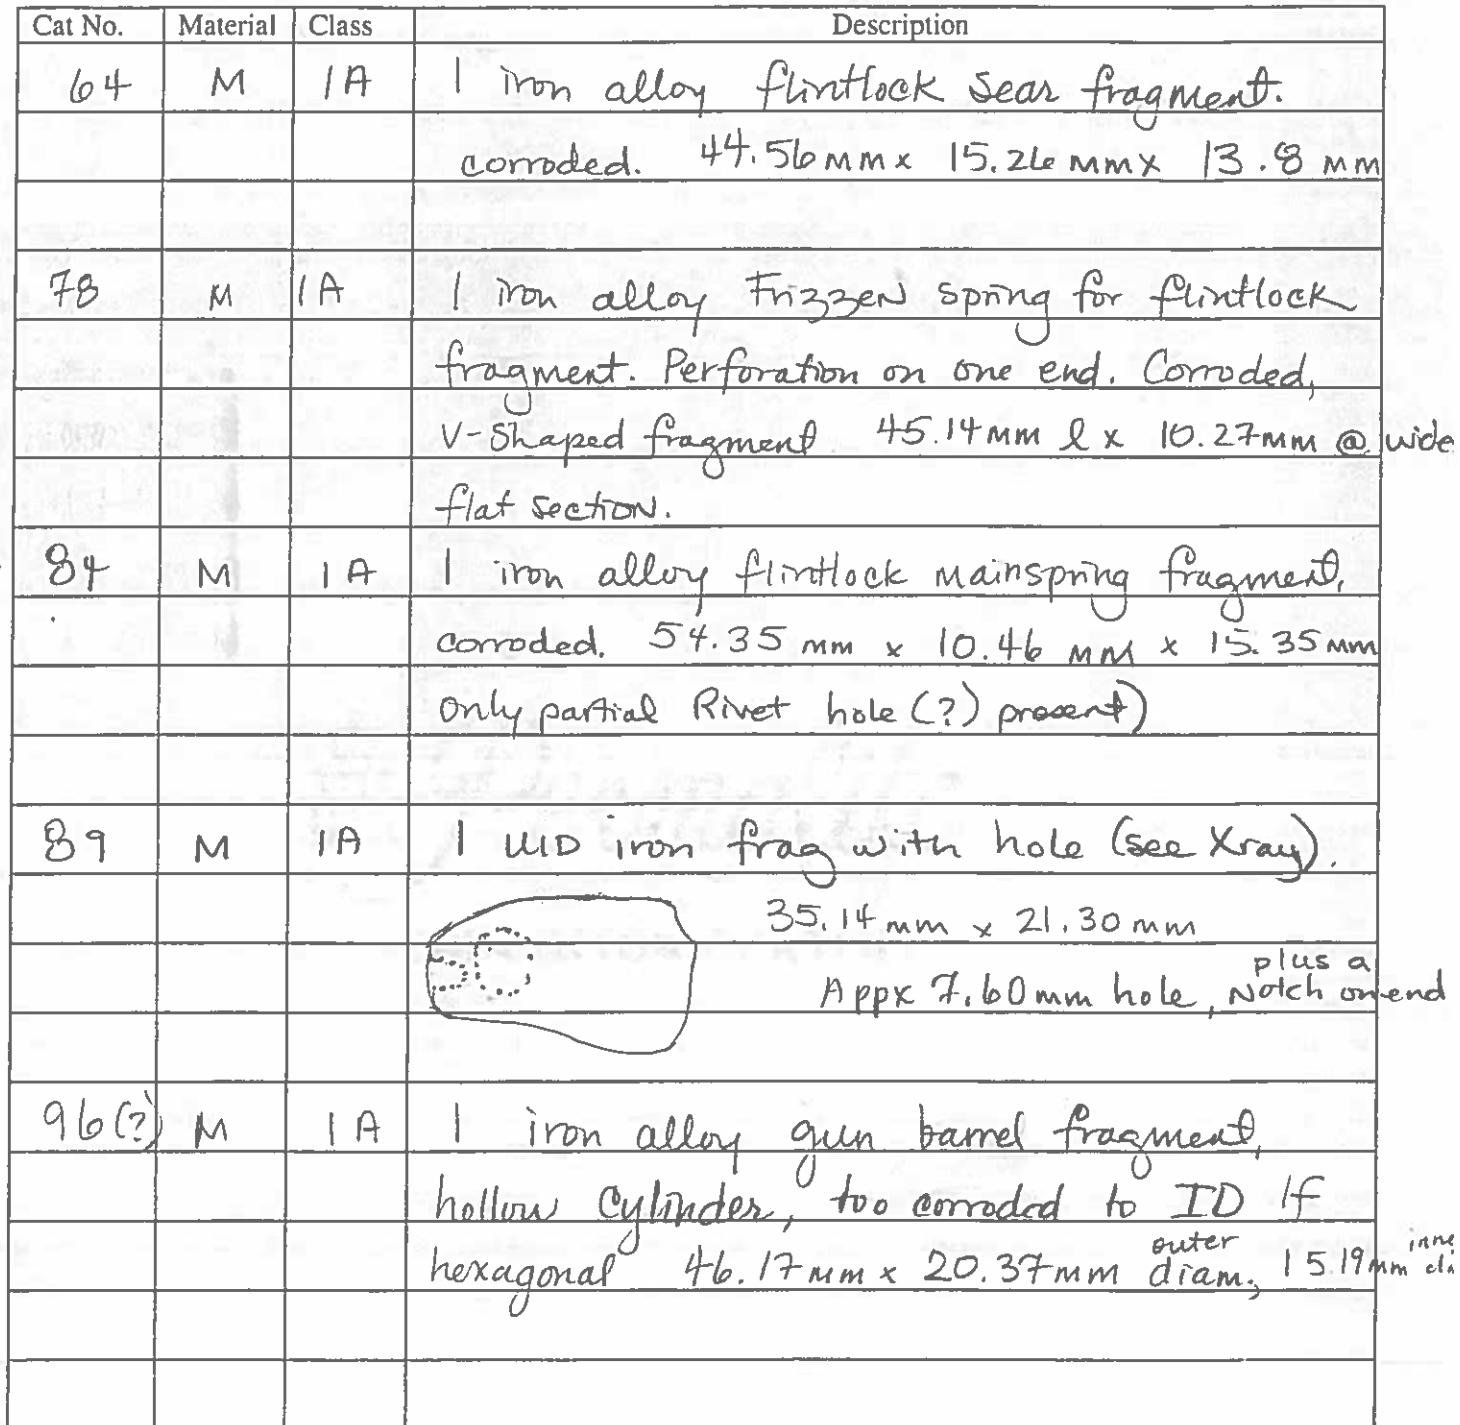 Cat No. Material Class Description
64 M 1A 1 iron alloy flintlock sear fragment.
corroded. 44.56 mm x 15.26 mm x 13.8 mm
78 M 1A 1 iron alloy Frizzen spring for flintlock
fragment. Perforation on one end. Corroded,
V-shaped fragment 45.14 mm l x 10.27mm @ wide
flat section.
84 M 1A 1 iron alloy flintlock mainspring fragment,
corroded. 54.35 mm x 10.46 mm x 15.35 mm
only partial Rivet hole (?) present)
89 M 1A 1 UID iron frag with hole (see Xray).
35.14 mm x 21.30 mm
Appx 7.60mm hole, plus a Notch on end
96(?) M 1A 1 iron alloy gun barrel fragment,
hollow cylinder, too corroded to ID If
hexagonal 46.17mm x 20.37mm outer diam., 15.19mm